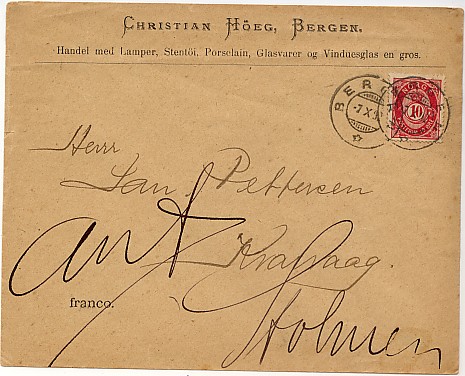 CHRISTIAN HÖEG, BERGEN.
Handel med Lamper, Stentöi, Porselain, Glasvarer og Vinduesglas en gros.
BERGEN
-7 X
10
Herr
Lars Pettersen
Kragaag
ank
franco.
Holmen